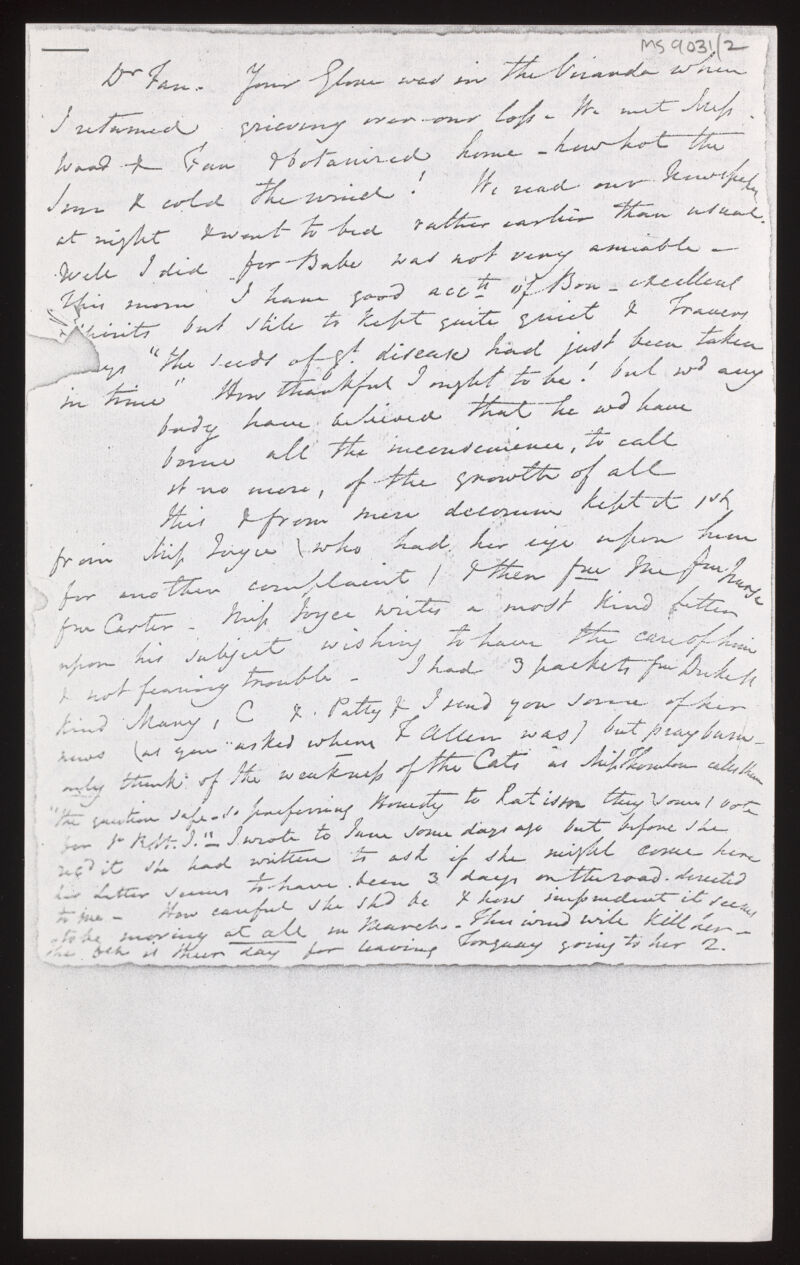 MS 9031/2
Dr Fan. Your Glove was in the Viranda when
I returned grieving over our loss - We met Miss
Wood & Fan & botanized home - how hot the
Sun & cold the wind! We read our Newspaper
at night & went to bed rather earlier than usual.
Well I did for Babe was not very amiable -
This morn I have good acc.ts of Bon - excellent
spirits but still to kept quite quiet & Travers
says "the seeds of gt. disease had just been taken
in time" How thankful I ought to be! but wd any
body have believed that he wd have
borne all the inconvenience, to call
it no more, of the growth of all
this & from mere decorum kept it 1st
from Miss Joyce (who had her eye upon him
for another complaint) & then fm me fm Nurse
fm Carter - Miss Joyce writes a most kind letter
upon his subject wishing to have the care of him
& not fearing trouble - I had 3 packets fm
kind Mary, C & Patty & I send you some of her
news (as you asked where F Allen was) but pray burn -
only think of the weakness of the Cats as Miss Thornton calls them
"the question safe - so preferring Honesty to Ratism they (some) vote
for Sr Robt. I." - I wrote to Jane some days ago but before she
recd it she had written to ask if she might come here
her letter seems to have been 3 days on the road - directed
to me - How careful she shd be & how imprudent it seems
to be moving at all in March - This wind will kill her -
the 8th is their day for leaving Torquay going to her 2.